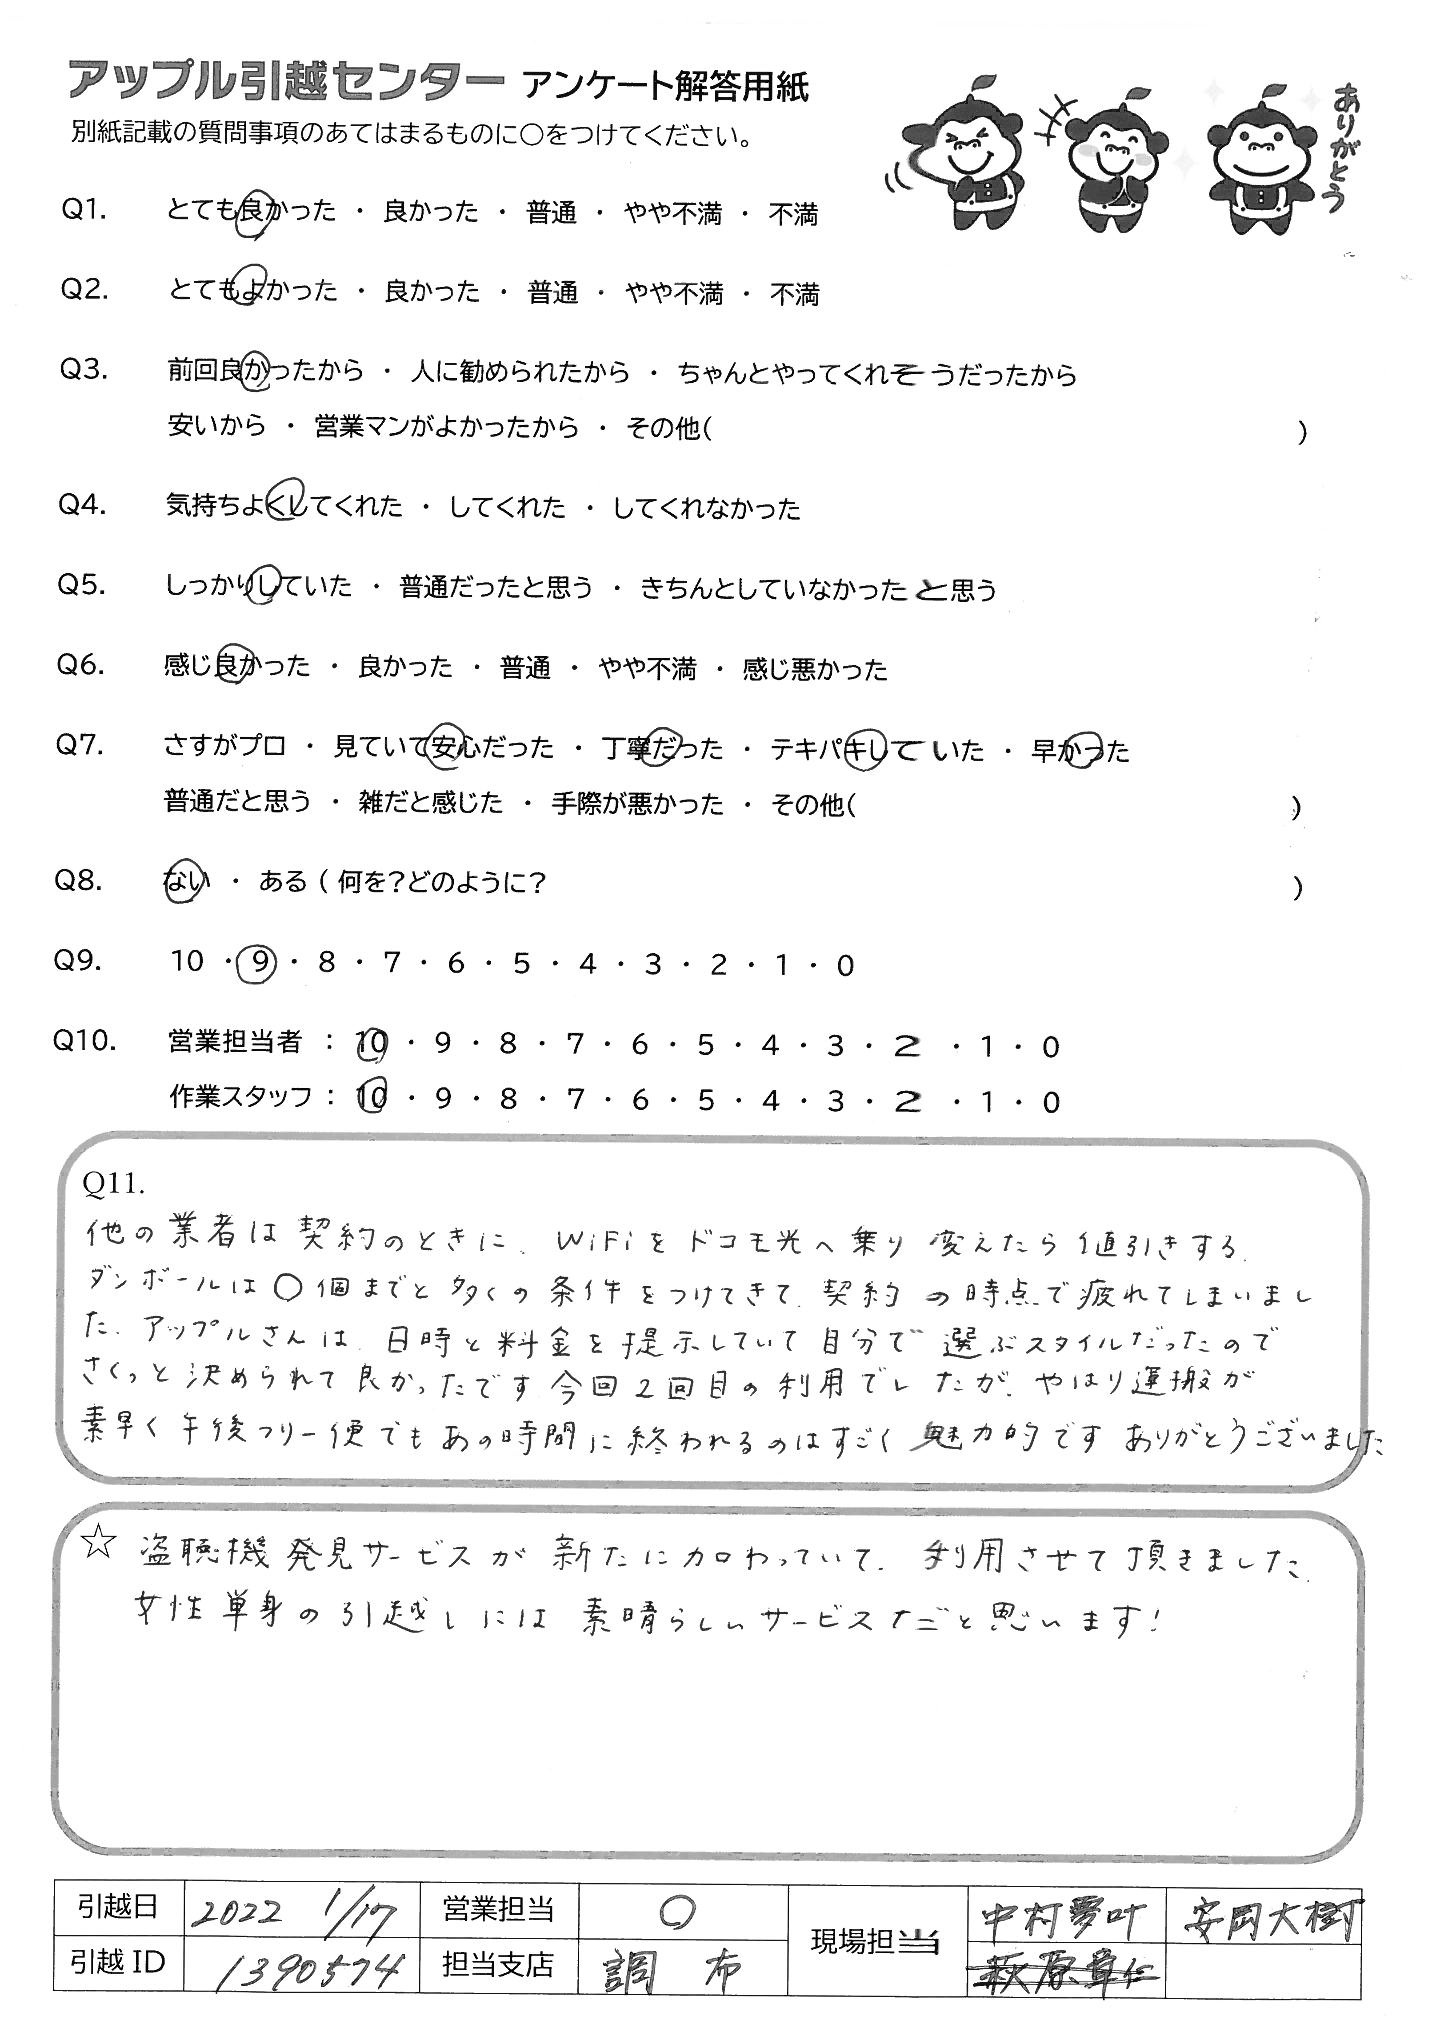 アップル引越センター アンケート解答用紙
別紙記載の質問事項のあてはまるものに○をつけてください。
ありがとう
Q1. とても良かった ・ 良かった ・ 普通 ・ やや不満 ・ 不満
Q2. とてもよかった ・ 良かった ・ 普通 ・ やや不満 ・ 不満
Q3. 前回良かったから ・ 人に勧められたから ・ ちゃんとやってくれそうだったから
安いから ・ 営業マンがよかったから ・ その他( )
Q4. 気持ちよくしてくれた ・ してくれた ・ してくれなかった
Q5. しっかりしていた ・ 普通だったと思う ・ きちんとしていなかったと思う
Q6. 感じ良かった ・ 良かった ・ 普通 ・ やや不満 ・ 感じ悪かった
Q7. さすがプロ ・ 見ていて安心だった ・ 丁寧だった ・ テキパキしていた ・ 早かった
普通だと思う ・ 雑だと感じた ・ 手際が悪かった ・ その他( )
Q8. ない ・ ある ( 何を?どのように? )
Q9. 10 ・ 9 ・ 8 ・ 7 ・ 6 ・ 5 ・ 4 ・ 3 ・ 2 ・ 1 ・ 0
Q10. 営業担当者 : 10 ・ 9 ・ 8 ・ 7 ・ 6 ・ 5 ・ 4 ・ 3 ・ 2 ・ 1 ・ 0
作業スタッフ : 10 ・ 9 ・ 8 ・ 7 ・ 6 ・ 5 ・ 4 ・ 3 ・ 2 ・ 1 ・ 0
Q11.
他の業者は契約のときに、WiFiをドコモ光へ乗り変えたら値引きする、
ダンボールは○個までと多くの条件をつけてきて、契約の時点で疲れてしまいまし
た。アップルさんは、日時と料金を提示していて自分で選ぶスタイルだったので
さくっと決められて良かったです。今回2回目の利用でしたが、やはり運搬が
素早く午後フリー便でもあの時間に終われるのはすごく魅力的です ありがとうございました
☆ 盗聴機発見サービスが新たに加わっていて、利用させて頂きました。
女性単身の引越しには素晴らしいサービスだと思います!
引越日 2022 1/17 営業担当 ○ 現場担当 中村夢叶 安岡大樹
引越ID 1390574 担当支店 調布 萩原章仁